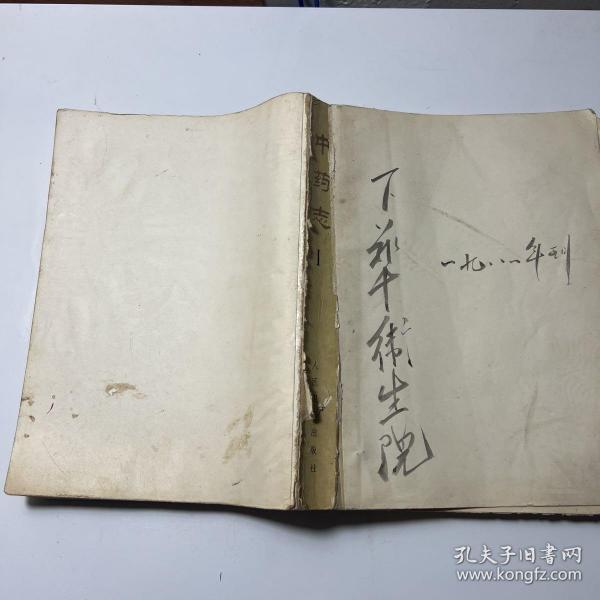 中药志
I
人民
出版社
下
衛生院
一九八一年刊
孔夫子旧书网
www.kongfz.com